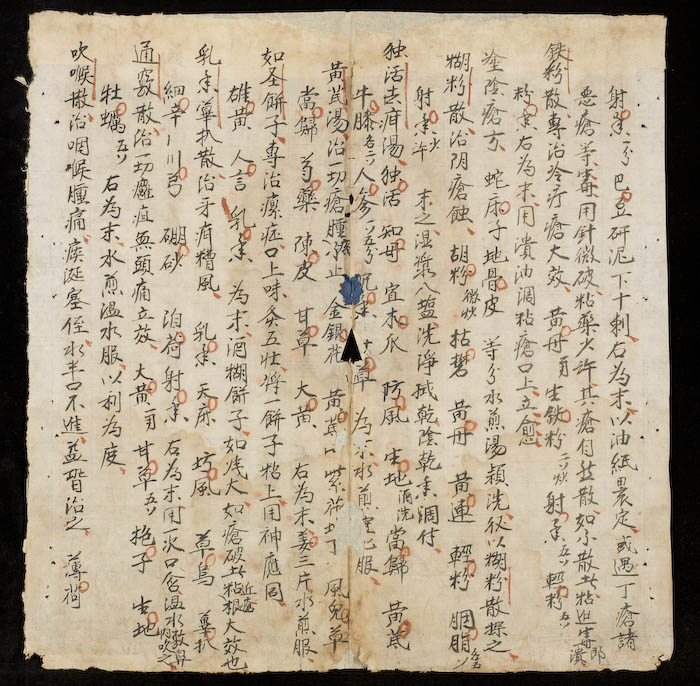 射香一分 巴豆研泥 下十刺 右為末以油紙裹定或遇丁瘡諸
惡瘡等毒用針微破粘藥少許其瘡自然散如不散此粘追毒
鉄粉散專治冷疔瘡大效 黃丹 生鉄粉 二分炒 射香五分 輕粉五分
松香右為末用清油調粘瘡口上立愈
塗陰瘡方 蛇床子 地骨皮 等分水煎湯頻洗後以糊粉散摻之
糊粉散治阴瘡蝕 胡粉微炒 枯礬 黃丹 黃連 輕粉 胭脂
射香少许 末之溫漿入盐洗淨拭乾陰乾 調付
独活 湯独活 知母 宣木瓜 防風 生地酒洗 當歸 黃芪
牛膝各二分 人參 五分 草 為末水煎 服
黃芪湯治一切瘡腫 止 金銀花 黃芪 紫花地丁 風兒草
當歸 芍藥 陳皮 甘草 大黃 右為末姜三片水煎服
如圣餅子專治瘰症口上味灸五壮將一餅子粘上用神應
雄黃 人言 乳香 為末酒糊餅子如 大如瘡破此粘根大效也
乳香 散治牙疳糟風 乳香 天麻 防風 草烏
細辛 川弓 硼砂 泊荷 射香 右為末用 口含溫水
通竅散治一切 疽無頭痛立效 大黃 甘草五分 梔子 生地
牡蠣五分 右為末水煎溫水服以利為度
吹喉散治咽喉腫痛痰涎塞 水半口不進並皆治之 薄荷